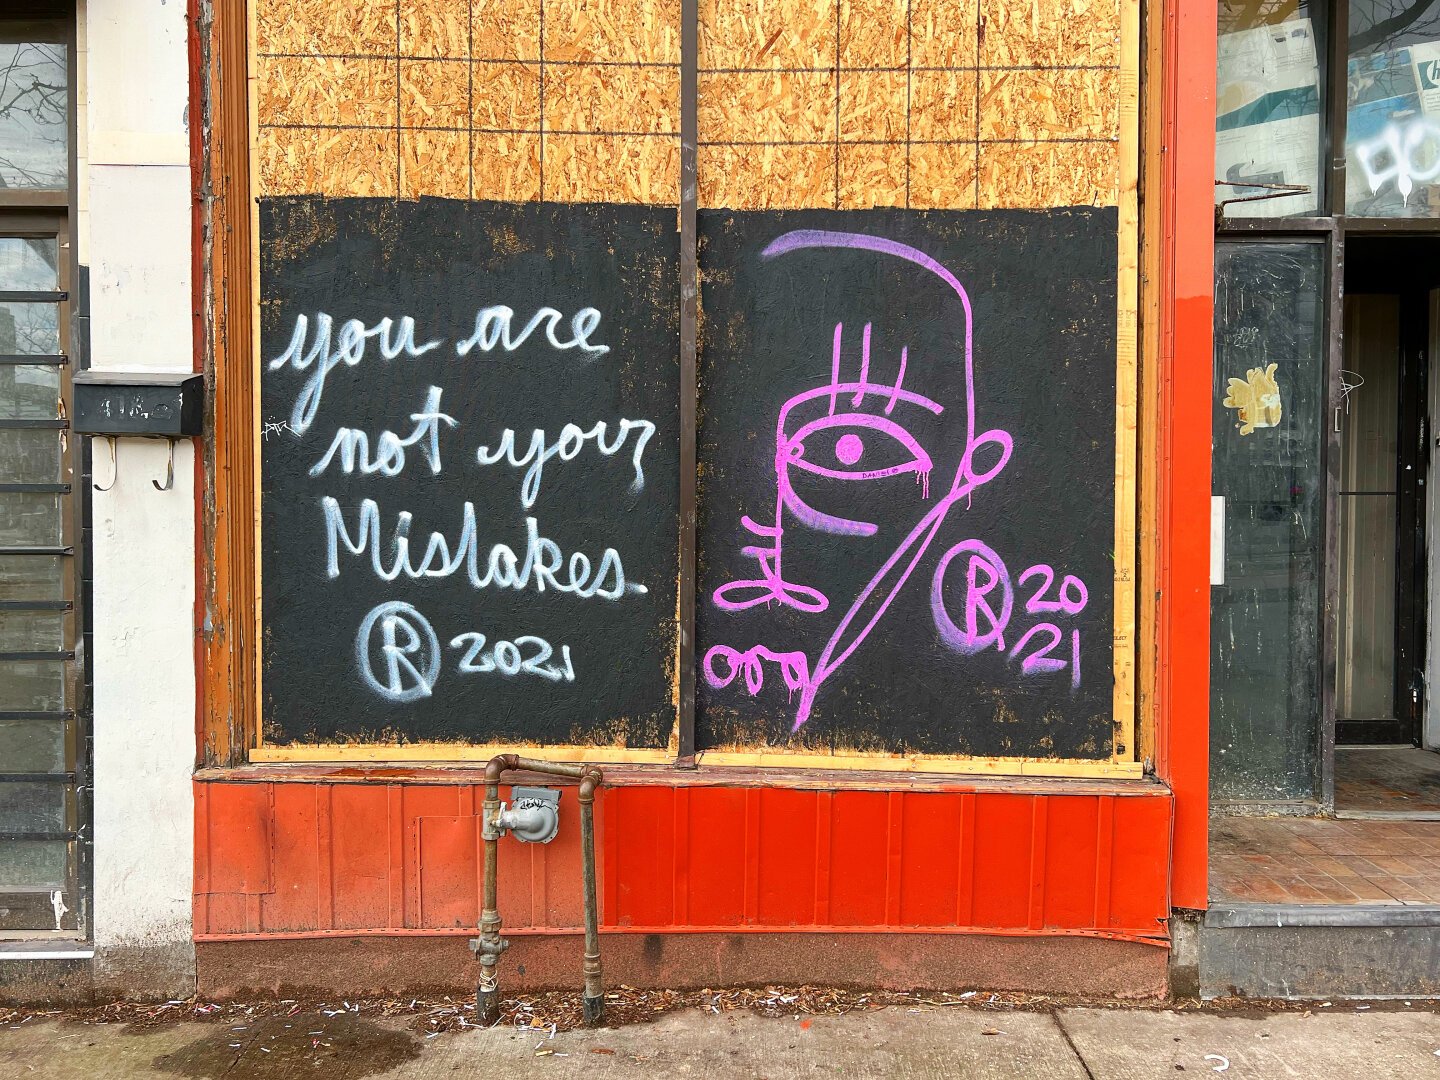 you are
not your
Mistakes.
® 2021
® 20
21